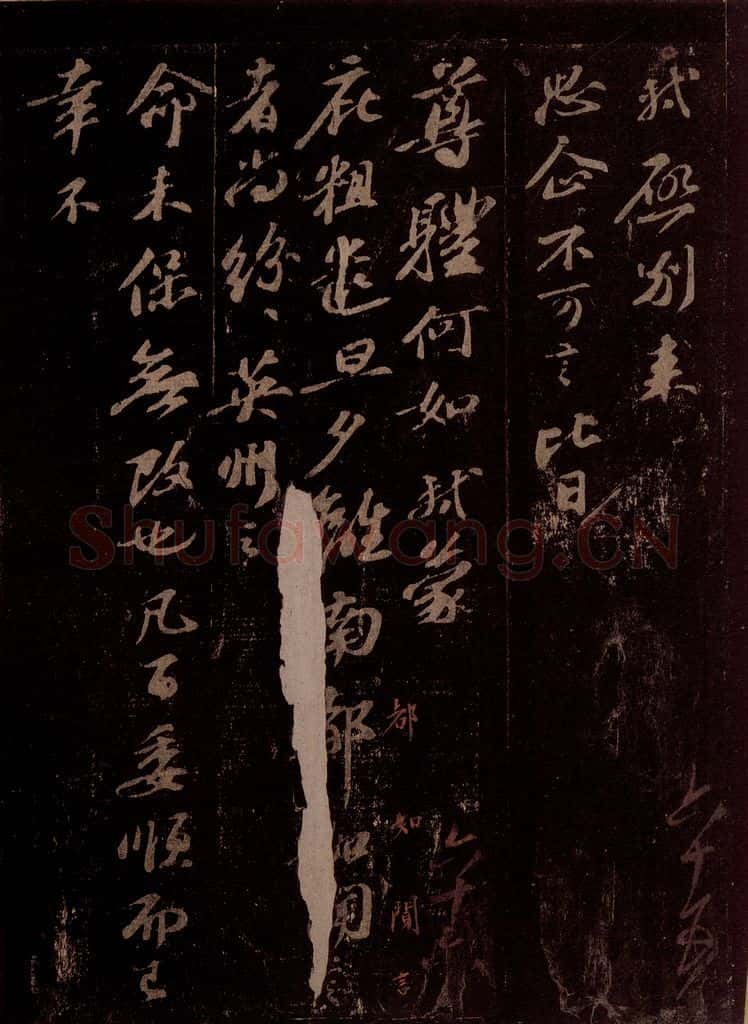 軾啓別来
思企不可言比日
尊體何如軾蒙
庇粗遣旦夕離南都如聞言
都如聞言
者尚紛〻英州之
命未保無改也凡百委順而已
幸不
Shufawang.CN